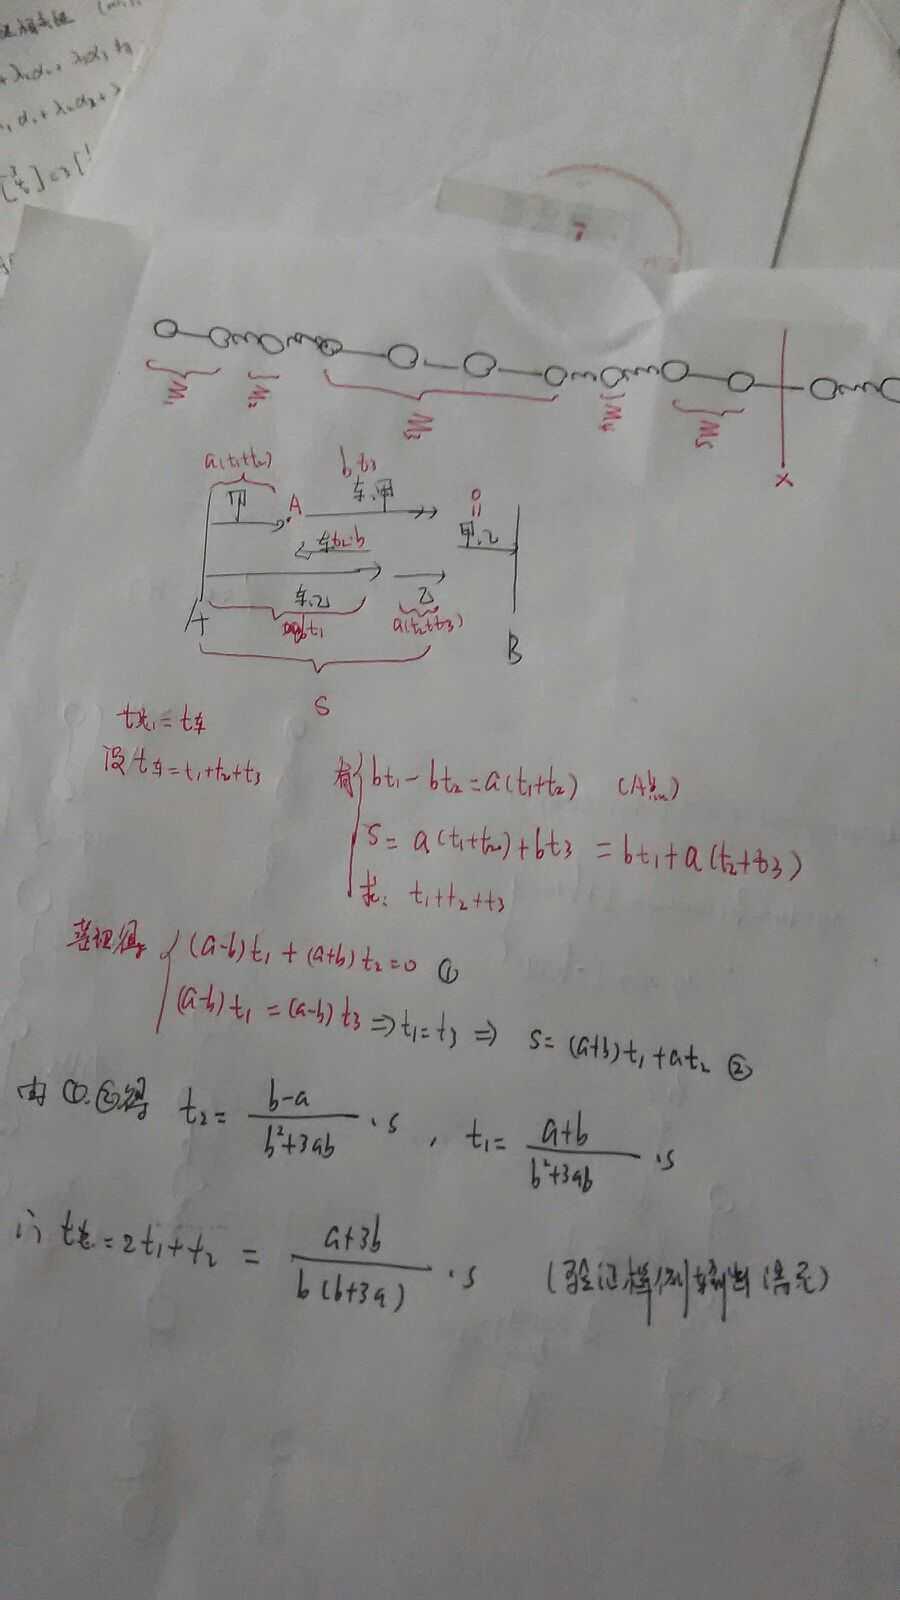 +λ₂α₂+λ₃α₃
α₁+λ₂α₂+λ
7
M₁ M₂ M₃ M₄ M₅
X
a(t₁+t₂) bt₃
甲 A 车.甲
甲.乙
车t₂·b
车.乙 乙
A bt₁ a(t₂+t₃)
B
S
t总=t车
设t车=t₁+t₂+t₃
有 bt₁-bt₂=a(t₁+t₂) (A点)
S=a(t₁+t₂)+bt₃=bt₁+a(t₂+t₃)
求: t₁+t₂+t₃
整理得 (a-b)t₁+(a+b)t₂=0 ①
(a-b)t₁=(a-b)t₃⇒t₁=t₃⇒ S=(a+b)t₁+at₂ ②
由①.②得 t₂=(b-a)/(b²+3ab)·S , t₁=(a+b)/(b²+3ab)·S
∴ t总=2t₁+t₂=(a+3b)/(b(b+3a))·S (验证样例输出漂亮)